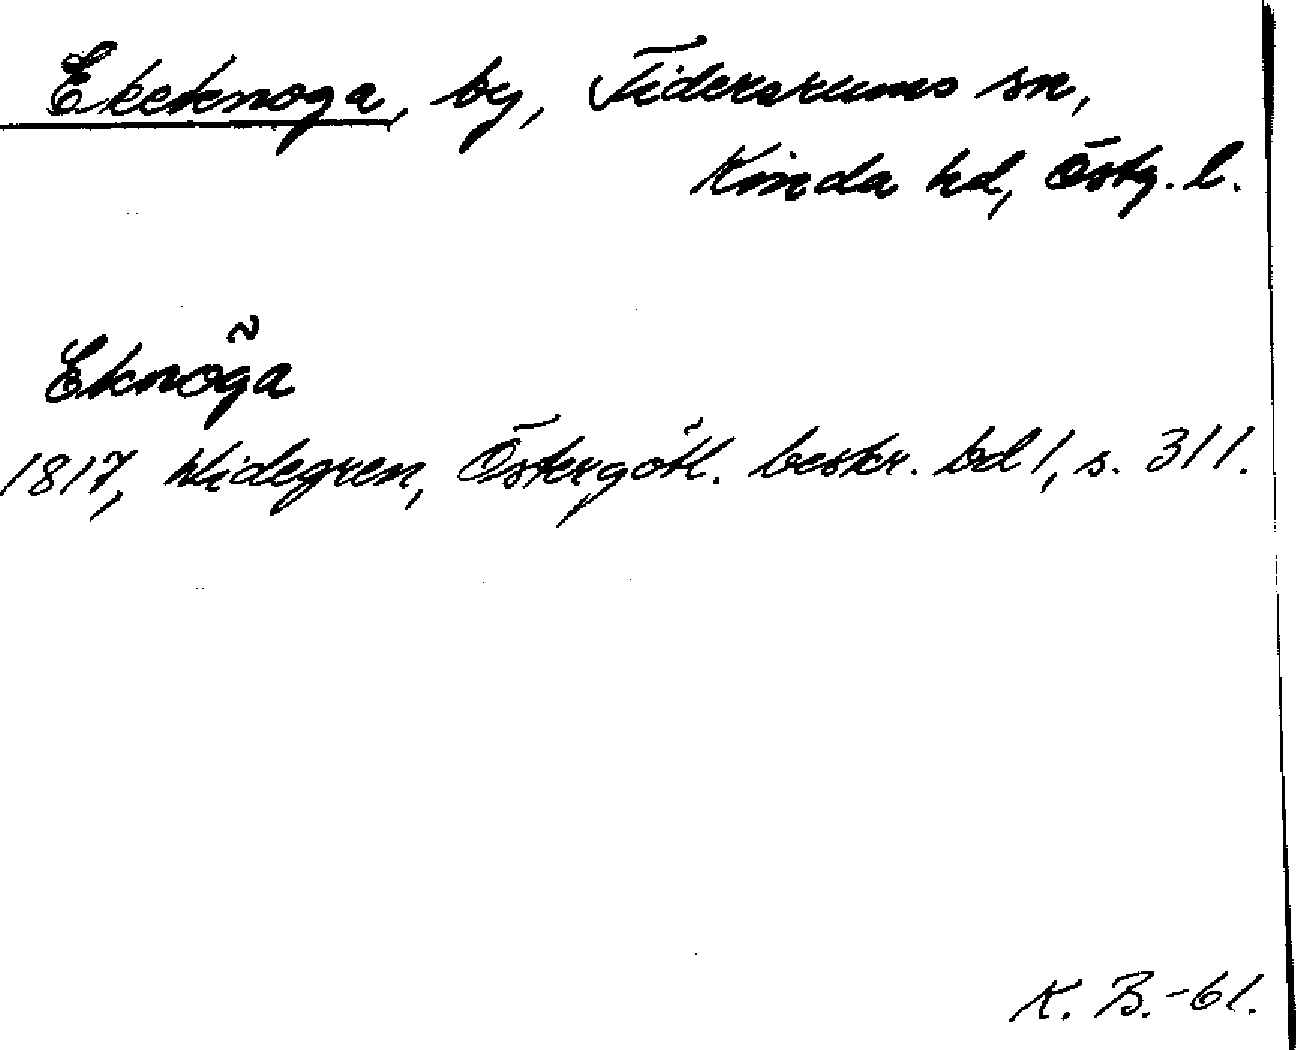 Ekeknoga, by, Tidersrums sn,
Kinda hd, Östg. l.
Eknöga
1817, Widegren, Östergötl. beskr. bd 1, s. 311.
K. B. -61.